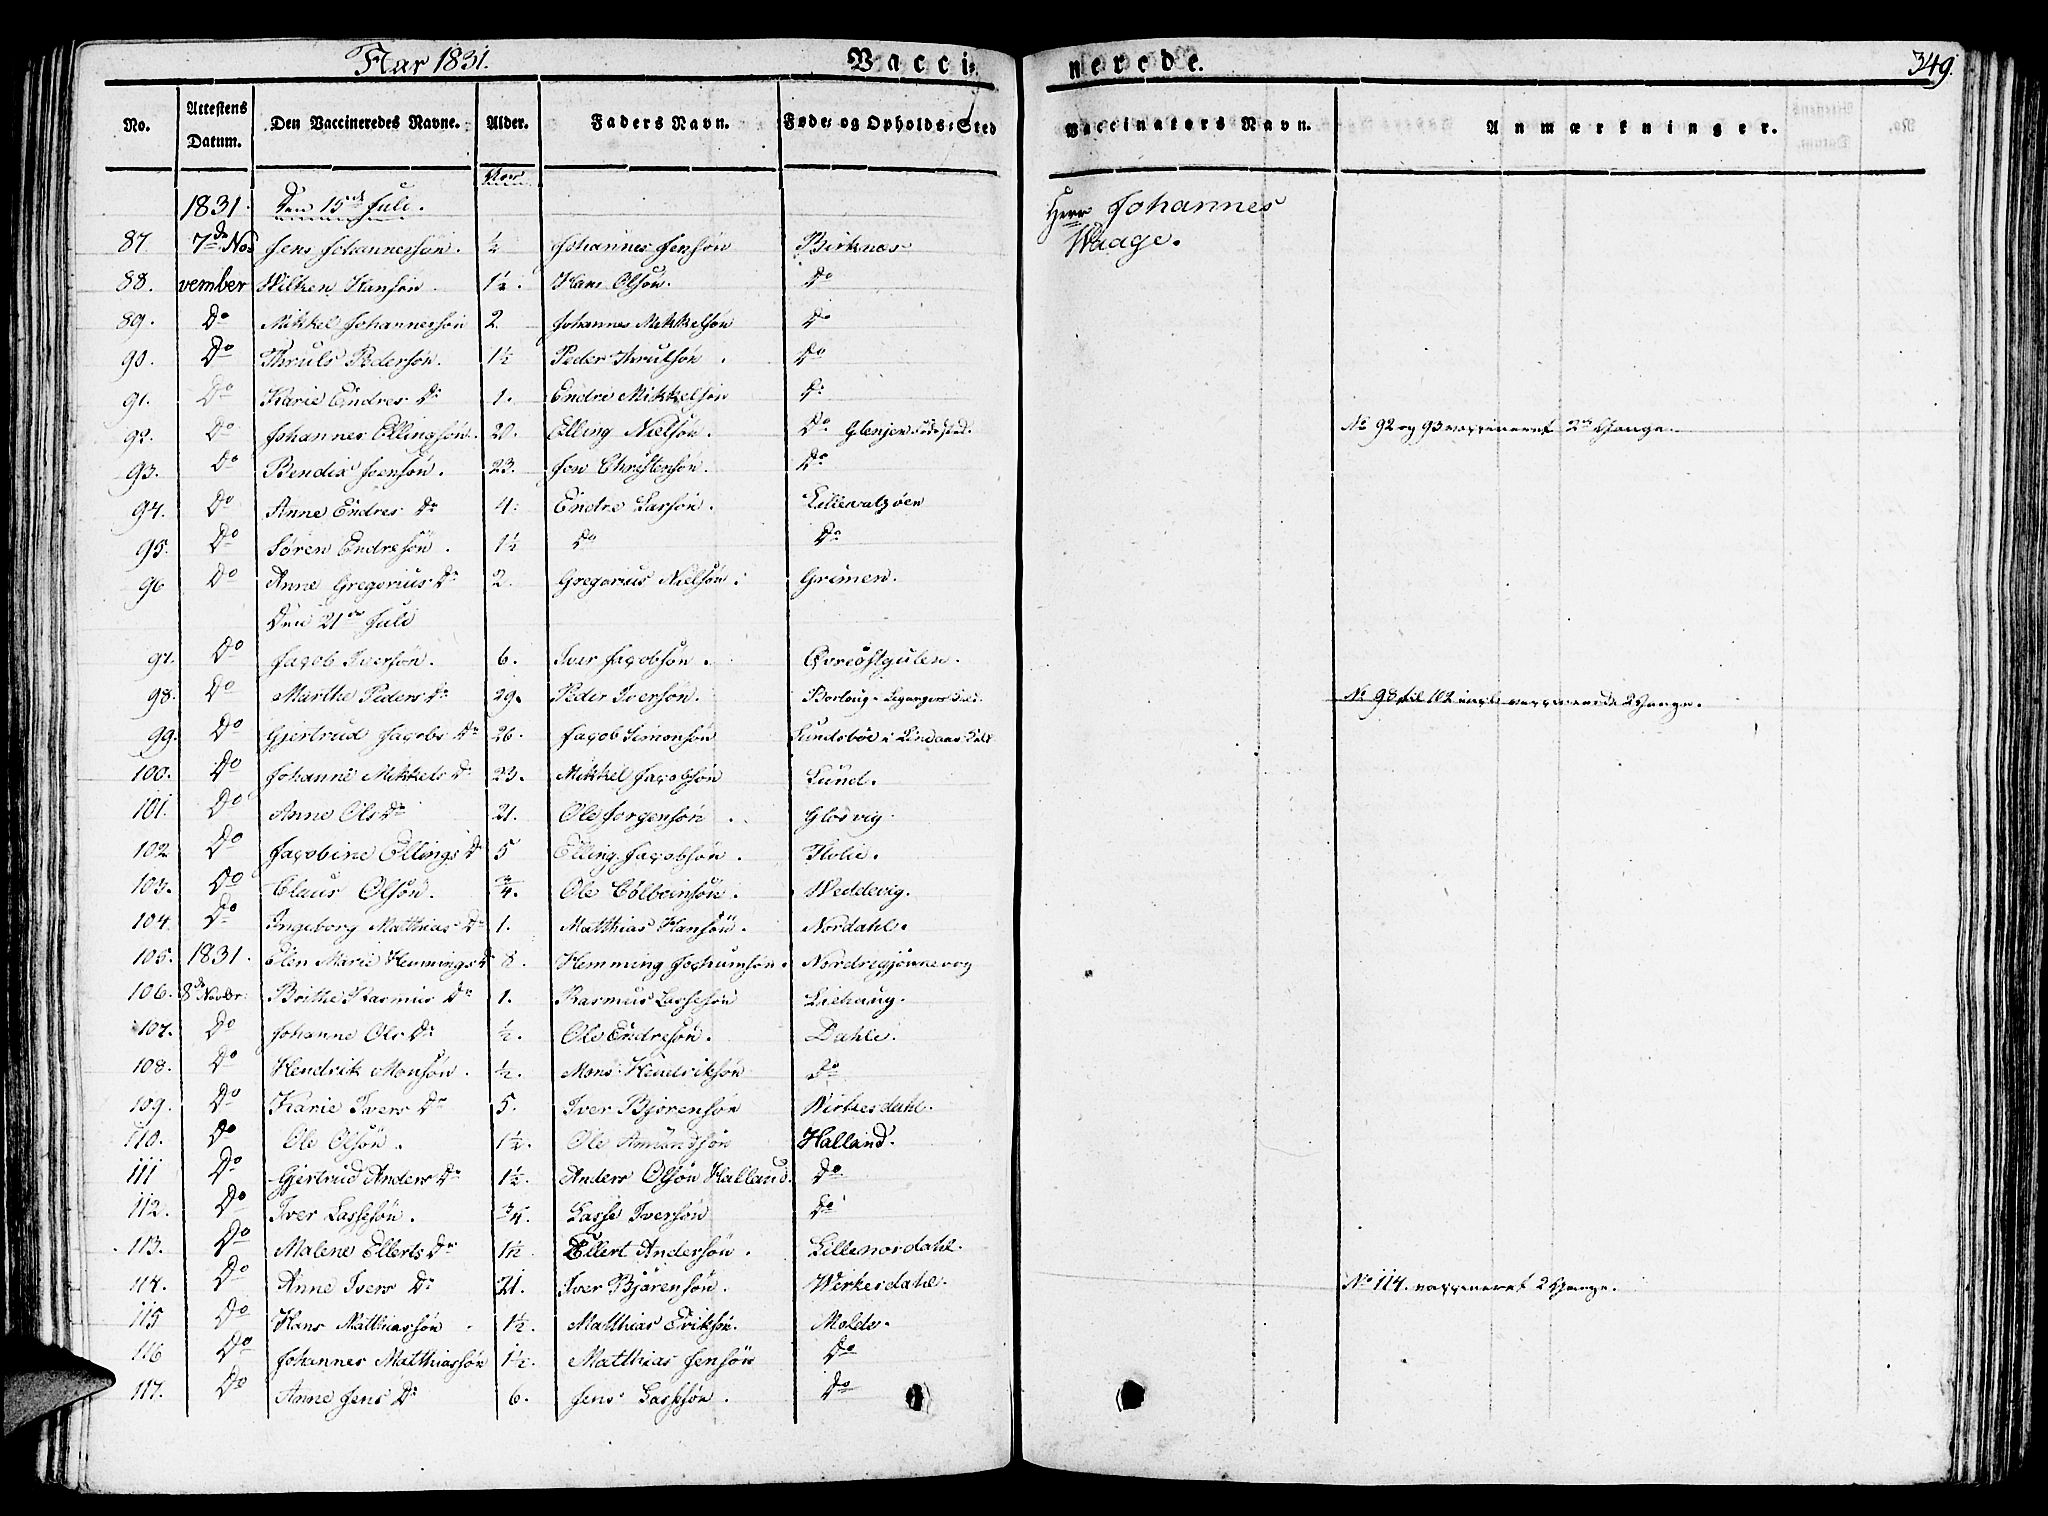 Aar 1831. Vacci-nerede. 349.
No. Attestens Datum. Den Vaccineredes Navne. Alder. Faders Navn. Føde- og Opholds-Sted Vaccinators Navn. Anmærkninger.
Aar
1831. Den 15de Juli. Herr Johannes
87. 7de No= Jens Johannessøn. ½ Johannes Jensøn Birknes Waage.
88. vember Wilken Hansøn. 1½. Hans Olsøn. Do
89. Do Mikkel Johannessøn 2. Johannes Mikkelsøn Do
90. Do Thruls Pedersøn. 1½ Peder Thrulsøn. Do
91. Do Karie Endres Dr 1. Endre Mikkelsøn Do
92. Do Johannes Ellingsøn. 20. Elling Nielsøn. Do Glenjen Fødested. No 92 og 93 vaccineret 2den Gange.
93. Do Bendix Joensøn. 23. Jon Christensøn. Do
94. Do Anne Endres Dr 4. Endre Larsøn. Lillevatsøen
95. Do Søren Endresøn. 1½ Do Do
96 Do Anne Gregorius Dr 2. Gregorius Nielsøn. Grimen.
Den 21de Juli
97. Do Jacob Iversøn. 6. Iver Jacobsøn. Øvreøstgulen.
98. Do Marthe Peders Dr 29. Peder Iversøn. Borlaug Leganger No 98 til 102 vaccinerede 2 Gange.
99. Do Gjertrud Jacobs Dr 26. Jacob Simonsøn Lundsbøe i Lindaas
100. Do Johanne Mikkels Dr 23. Mikkel Jacobsøn Lund.
101. Do Anne Ols Dr 21. Ole Jørgensøn. Glosvig
102 Do Jacobine Ellings Dr 5 Elling Jacobsøn. Holie.
103. Do Claus Olsøn. ¾. Ole Colbeinsøn. Weddevig.
104. Do Ingeborg Matthias Dr 1. Matthias Hansøn. Nordahl.
105. 1831. Elen Marie Hemmings Dr 8. Hemming Jochumsøn. Nordregjønnevog
106. 8de Novbr. Brithe Rasmus Dr 1. Rasmus Lassesøn Liehaug.
107. Do Johanne Ols Dr ½. Ole Endresøn. Dahle.
108. Do Hendrik Monsøn. ½. Mons Hendriksøn Do
109. Do Karie Ivers Dr 5. Iver Bjørensøn Wirkesdahl.
110. Do Ole Olsøn. 1½. Ole Amundsøn Halland.
111 Do Gjertrud Anders Dr 1½. Anders Olsøn Halland. Do
112. Do Iver Lassesøn. ¾. Lasse Iversøn Do
113. Do Malene Ellerts Dr 1½. Ellert Andersøn. Lillenordahl.
114. Do Anne Ivers Dr 21. Iver Bjørensøn. Wirkesdahl. No 114. vaccineret 2 Gange.
115 Do Hans Matthiassøn 1½. Matthias Eriksøn. Molde.
116 Do Johannes Matthiassøn 1½. Matthias Jensøn Do
117. Do Anne Jens Dr 6. Jens Lassesøn. Do